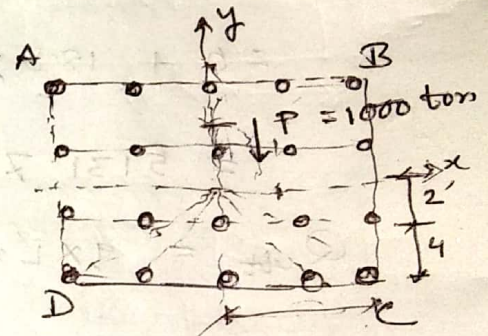 y
A B
P = 1000 ton
x
2'
4
D C